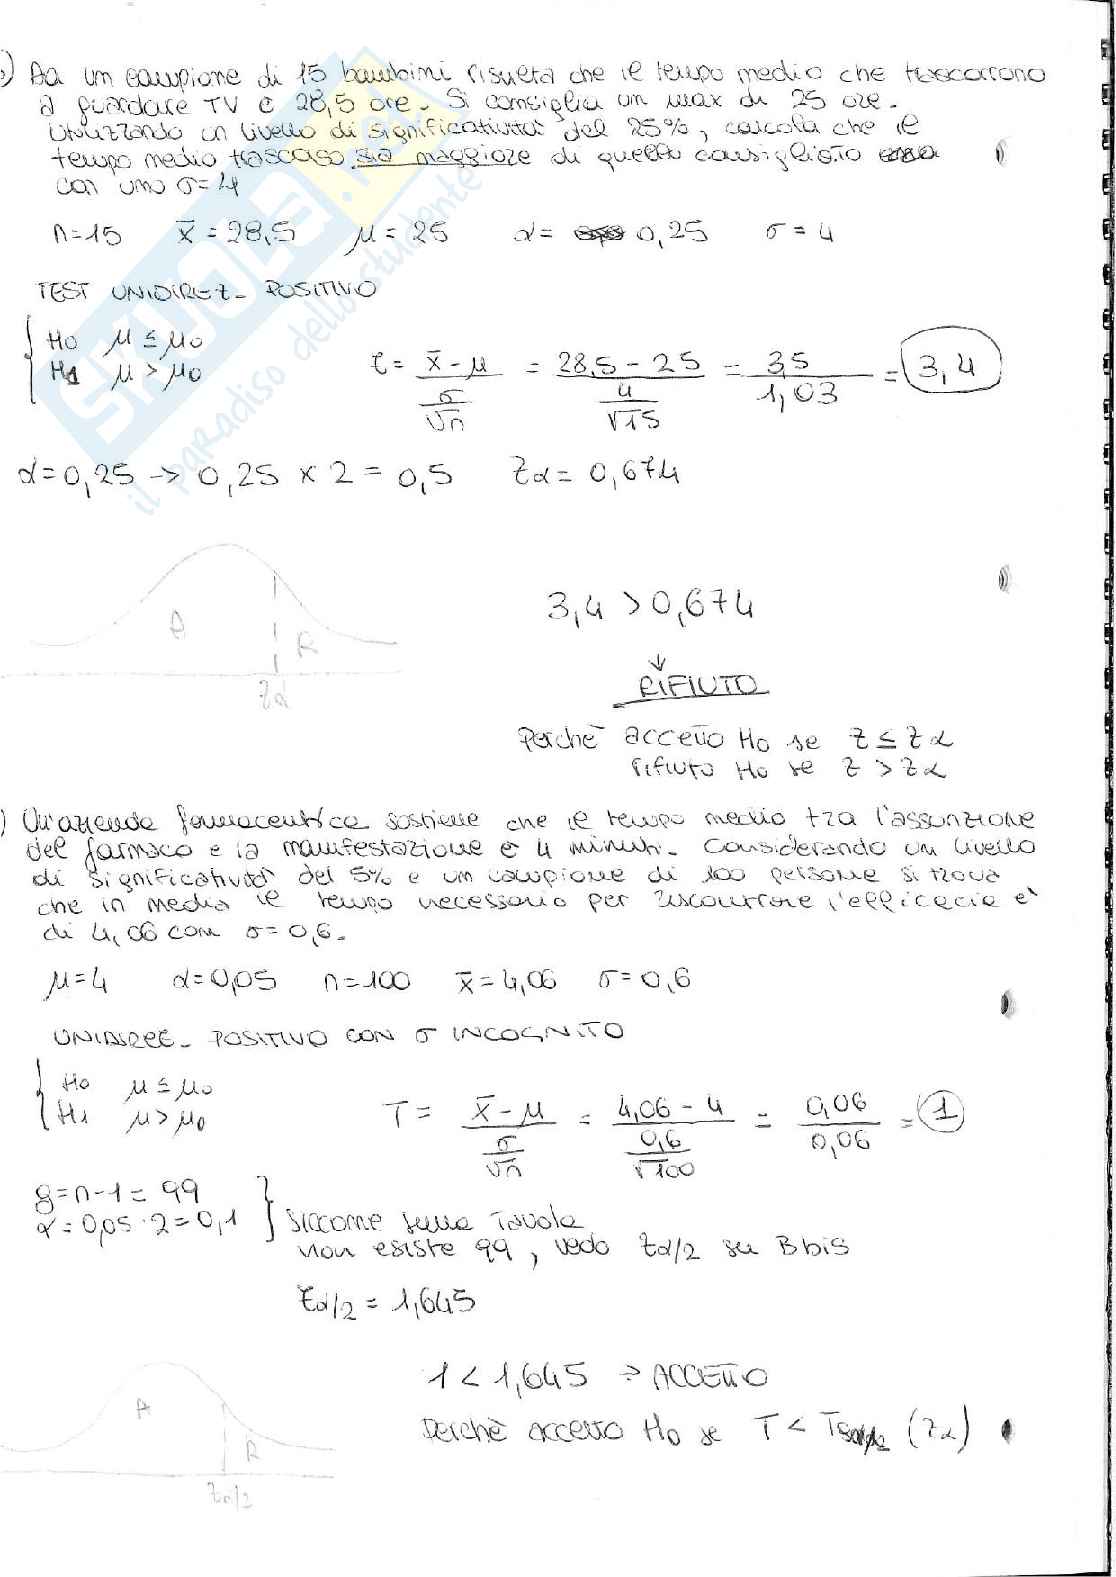 ) Da un campione di 15 bambini risulta che il tempo medio che trascorrono
a guardare TV è 28,5 ore. Si consiglia un max di 25 ore.
Utilizzando un livello di significatività del 25%, calcola che il
tempo medio trascorso sia maggiore di quello consigliato
con uno σ=4
n=15 x̄=28,5 μ=25 α= 0,25 σ=4
TEST UNIDIREZ. POSITIVO
{ H0 μ ≤ μ0
H1 μ > μ0
z = (x̄-μ)/(σ/√n) = (28,5-25)/(4/√15) = 3,5/1,03 = 3,4
α=0,25 → 0,25 x 2 = 0,5 Zα= 0,674
A R
Zα
3,4 > 0,674
↓
RIFIUTO
Perchè accetto H0 se Z ≤ Zα
rifiuto H0 se Z > Zα
) Un'azienda farmaceutica sostiene che il tempo medio tra l'assunzione
del farmaco e la manifestazione è 4 minuti. Considerando un livello
di significatività del 5% e un campione di 100 persone si trova
che in media il tempo necessario per riscontrare l'efficacia è
di 4,06 con σ=0,6.
μ=4 α=0,05 n=100 x̄=4,06 σ=0,6
UNIDIREZ. POSITIVO CON σ INCOGNITO
{ H0 μ ≤ μ0
H1 μ > μ0
T = (x̄-μ)/(σ/√n) = (4,06-4)/(0,6/√100) = 0,06/0,06 = 1
g=n-1=99
α=0,05·2=0,1 } Siccome sulla Tavola
non esiste 99, vedo Zα/2 su B bis
Zα/2 = 1,645
A R
Zα/2
1 < 1,645 → ACCETTO
Perchè accetto H0 se T < (Zα)
SKUOLA.net
il paradiso dello studente